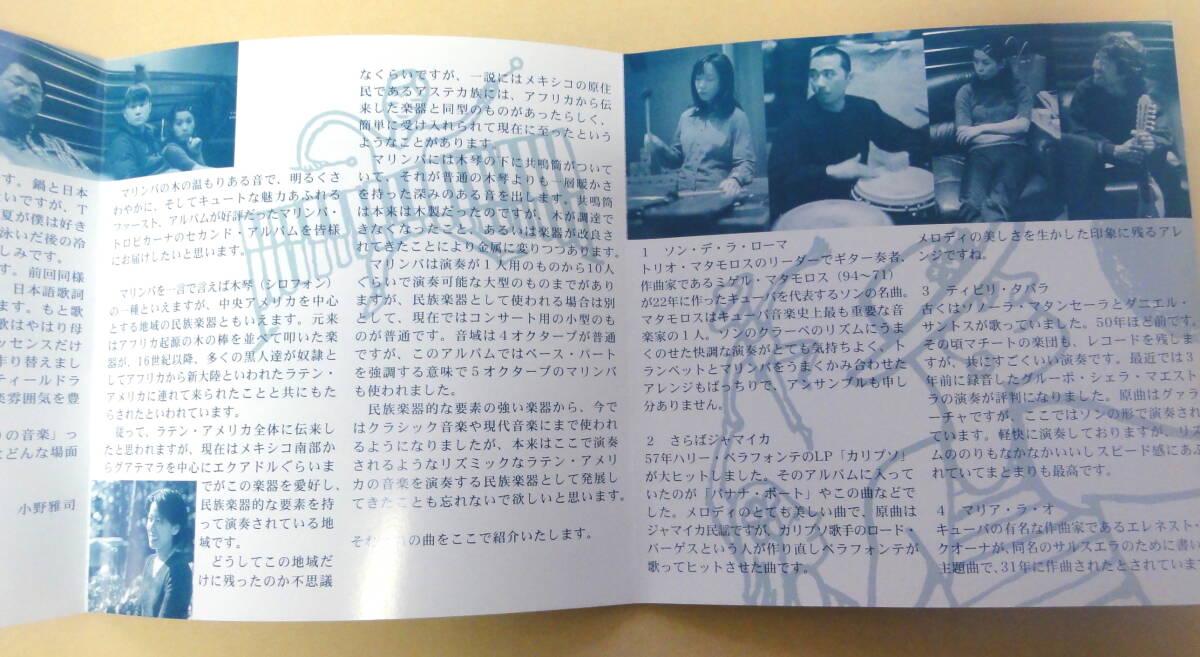 す。鍋と日本
たいですが、T
夏が僕は好き
泳いだ後の冷
しみです。
す。前回同様
日本語歌詞
ます。もと歌
歌はやはり母
ッセンスだけ
作り替えまし
ティールドラ
楽雰囲気を豊
りの音楽」っ
などんな場面
小野雅司
マリンバの木の温もりある音で、明るくさ
わやかに、そしてキュートな魅力あふれる
ファースト、アルバムが好評だったマリンバ・
トロピカーナのセカンド・アルバムを皆様
にお届けしたいと思います。
マリンバを一言で言えば木琴（シロフォン）
の一種といえますが、中央アメリカを中心
とする地域の民族楽器ともいえます。元来
はアフリカ起源の木の棒を並べて叩いた楽
器が、16世紀以降、多くの黒人達が奴隷と
してアフリカから新大陸といわれたラテン・
アメリカに連れて来られたことと共にもた
らされたといわれています。
従って、ラテン・アメリカ全体に伝来し
たと思われますが、現在はメキシコ南部か
らグアテマラを中心にエクアドルぐらいま
でがこの楽器を愛好し、
民族楽器的な要素を持
って演奏されている地
域です。
どうしてこの地域だ
けに残ったのか不思議
なくらいですが、一説にはメキシコの原住
民であるアステカ族には、アフリカから伝
来した楽器と同型のものがあったらしく、
簡単に受け入れられて現在に至ったという
ようなことがあります。
マリンバには木琴の下に共鳴筒がついて
いて、それが普通の木琴よりも一層暖かさ
を持った深みのある音を出します。共鳴筒
は本来は木製だったのですが、木が調達で
きなくなったこと、あるいは楽器が改良さ
れてきたことにより金属に変りつつあります。
マリンバは演奏が１人用のものから10人
ぐらいで演奏可能な大型のものまであり
ますが、民族楽器として使われる場合は別
として、現在ではコンサート用の小型のも
のが普通です。音域は４オクターブが普通
ですが、このアルバムではベース・パート
を強調する意味で５オクターブのマリンバ
も使われました。
民族楽器的な要素の強い楽器から、今で
はクラシック音楽や現代音楽にまで使われ
るようになりましたが、本来はここで演奏
されるようなリズミックなラテン・アメリ
カの音楽を演奏する民族楽器として発展し
てきたことも忘れないで欲しいと思います。
それぞれの曲をここで紹介いたします。
1　ソン・デ・ラ・ローマ
トリオ・マタモロスのリーダーでギター奏者、
作曲家であるミゲル・マタモロス（94〜71）
が22年に作ったキューバを代表するソンの名曲。
マタモロスはキューバ音楽史上最も重要な音
楽家の１人。ソンのクラーベのリズムにうま
くのせた快調な演奏がとても気持ちよく、ト
ランペットとマリンバをうまくかみ合わせた
アレンジもばっちりで、アンサンブルも申し
分ありません。
2　さらばジャマイカ
57年ハリー・ベラフォンテのLP「カリプソ」
が大ヒットしました。そのアルバムに入って
いたのが「バナナ・ボート」やこの曲などで
した。メロディのとても美しい曲で、原曲は
ジャマイカ民謡ですが、カリプソ歌手のロード・
バーゲスという人が作り直しベラフォンテが
歌ってヒットさせた曲です。
メロディの美しさを生かした印象に残るアレ
ンジですね。
3　ティピリ・タバラ
古くはソノーラ・マタンセーラとダニエル・
サントスが歌っていました。50年ほど前です
その頃マチートの楽団も、レコードを残しま
すが、共にすごくいい演奏です。最近では３
年前に録音したグルーポ・シェラ・マエスト
ラの演奏が評判になりました。原曲はグァラ
ーチャですが、ここではソンの形で演奏され
ています。軽快に演奏しておりますが、リズ
ムののりもなかなかいいしスピード感にあふ
れていてまとまりも最高です。
4　マリア・ラ・オ
キューバの有名な作曲家であるエレネスト・
クオーナが、同名のサルスエラのために書い
主題曲で、31年に作曲されたとされています